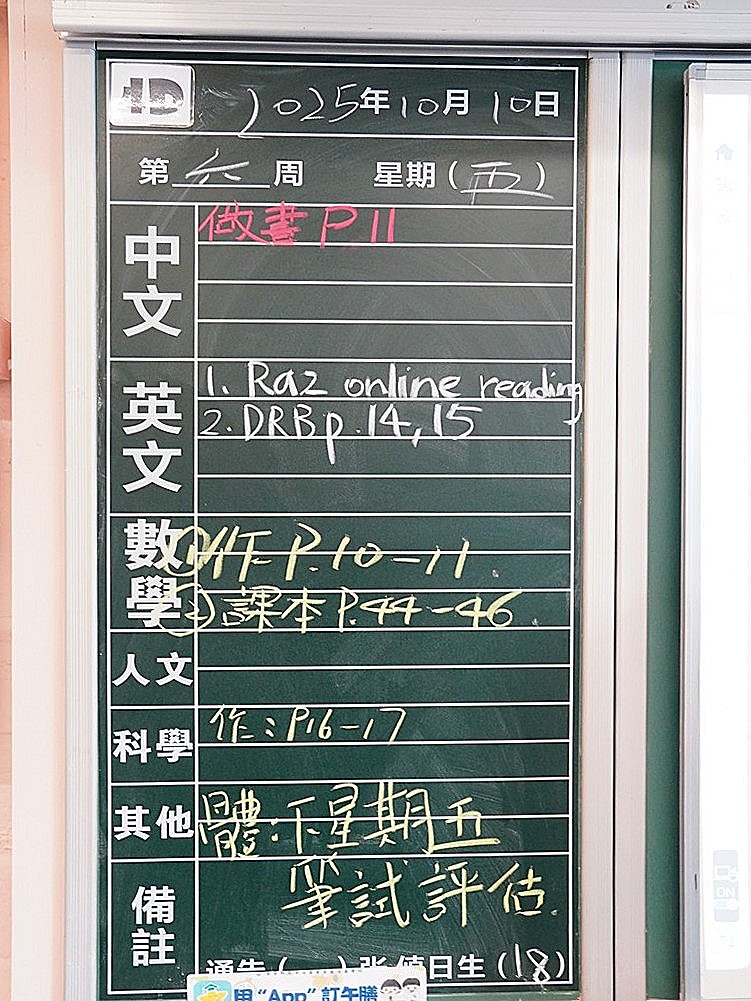 1D
2025年10月10日
第六周 星期(五)
中文
做書 P.11
英文
1. Raz online reading
2. DRB p.14,15
數學
①作 P.10-11
②課本 P.44-46
人文
科學
作:P16-17
其他
體:下星期五
筆試評估.
備註
通告( )张 值日生(18)
用“App”訂午膳
ON